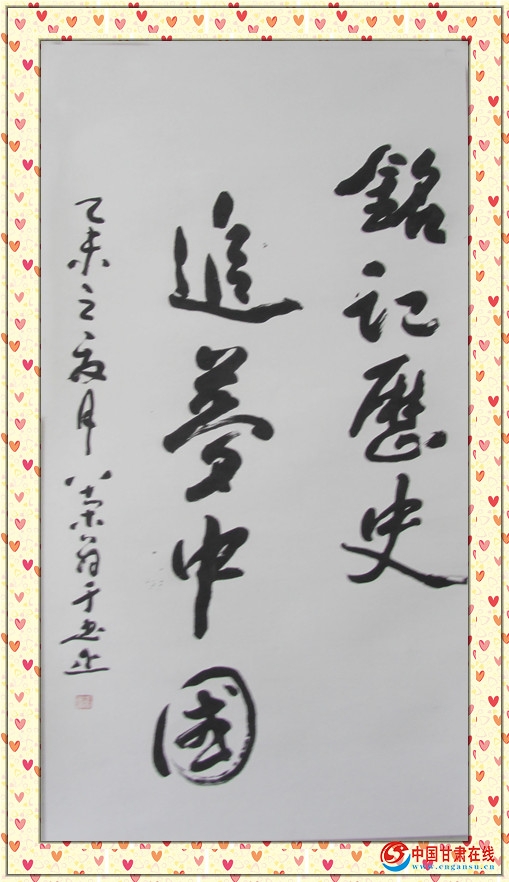 銘記歷史
追夢中國
乙未之夏月
中国甘肃在线
www.cngansu.cn